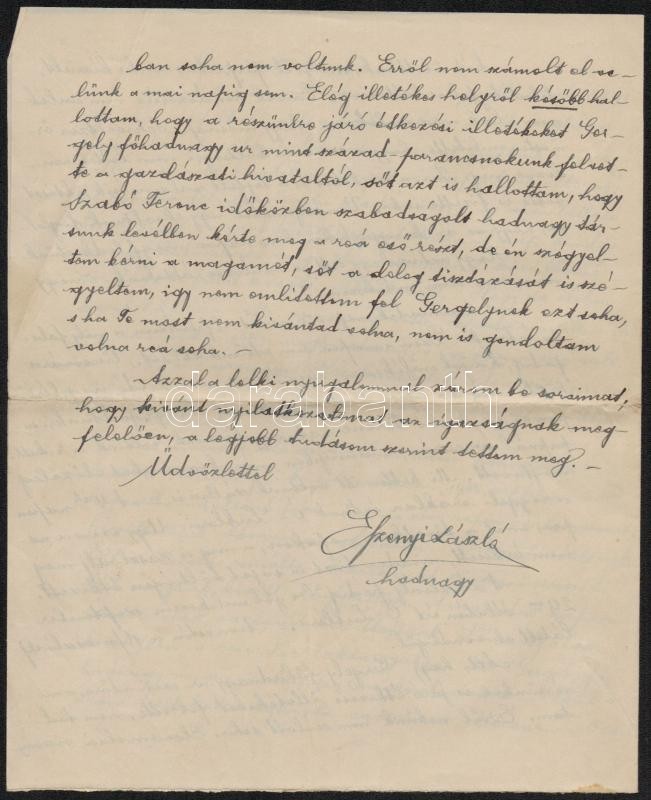 ban soha nem voltunk. Erről nem számolt el ve-
lünk a mai napig sem. Elég illetékes helyről később hal-
lottam, hogy a részünkre járó étkezési illetékeket Ger-
gely főhadnagy ur mint század-parancsnokunk felvet-
te a gazdászati hivataltól, sőt azt is hallottam, hogy
Szabó Ferenc időközben szabadságolt hadnagy tár-
sunk levélben kérte meg a reá eső részt, de én szégyel-
tem kérni a magamét, sőt a dolog tisztázását is szé-
gyeltem, igy nem emlitettem fel Gergelynek ezt soha,
s ha Te most nem kivántad volna, nem is gondoltam
volna reá soha. –
Azzal a lelki nyugalommal zárom be soraimat,
hogy kivánt nyilatkozatomat az igazságnak meg-
felelően, a legjobb tudásom szerint tettem meg. –
Üdvözlettel
Eszenyi László
hadnagy
darabanth